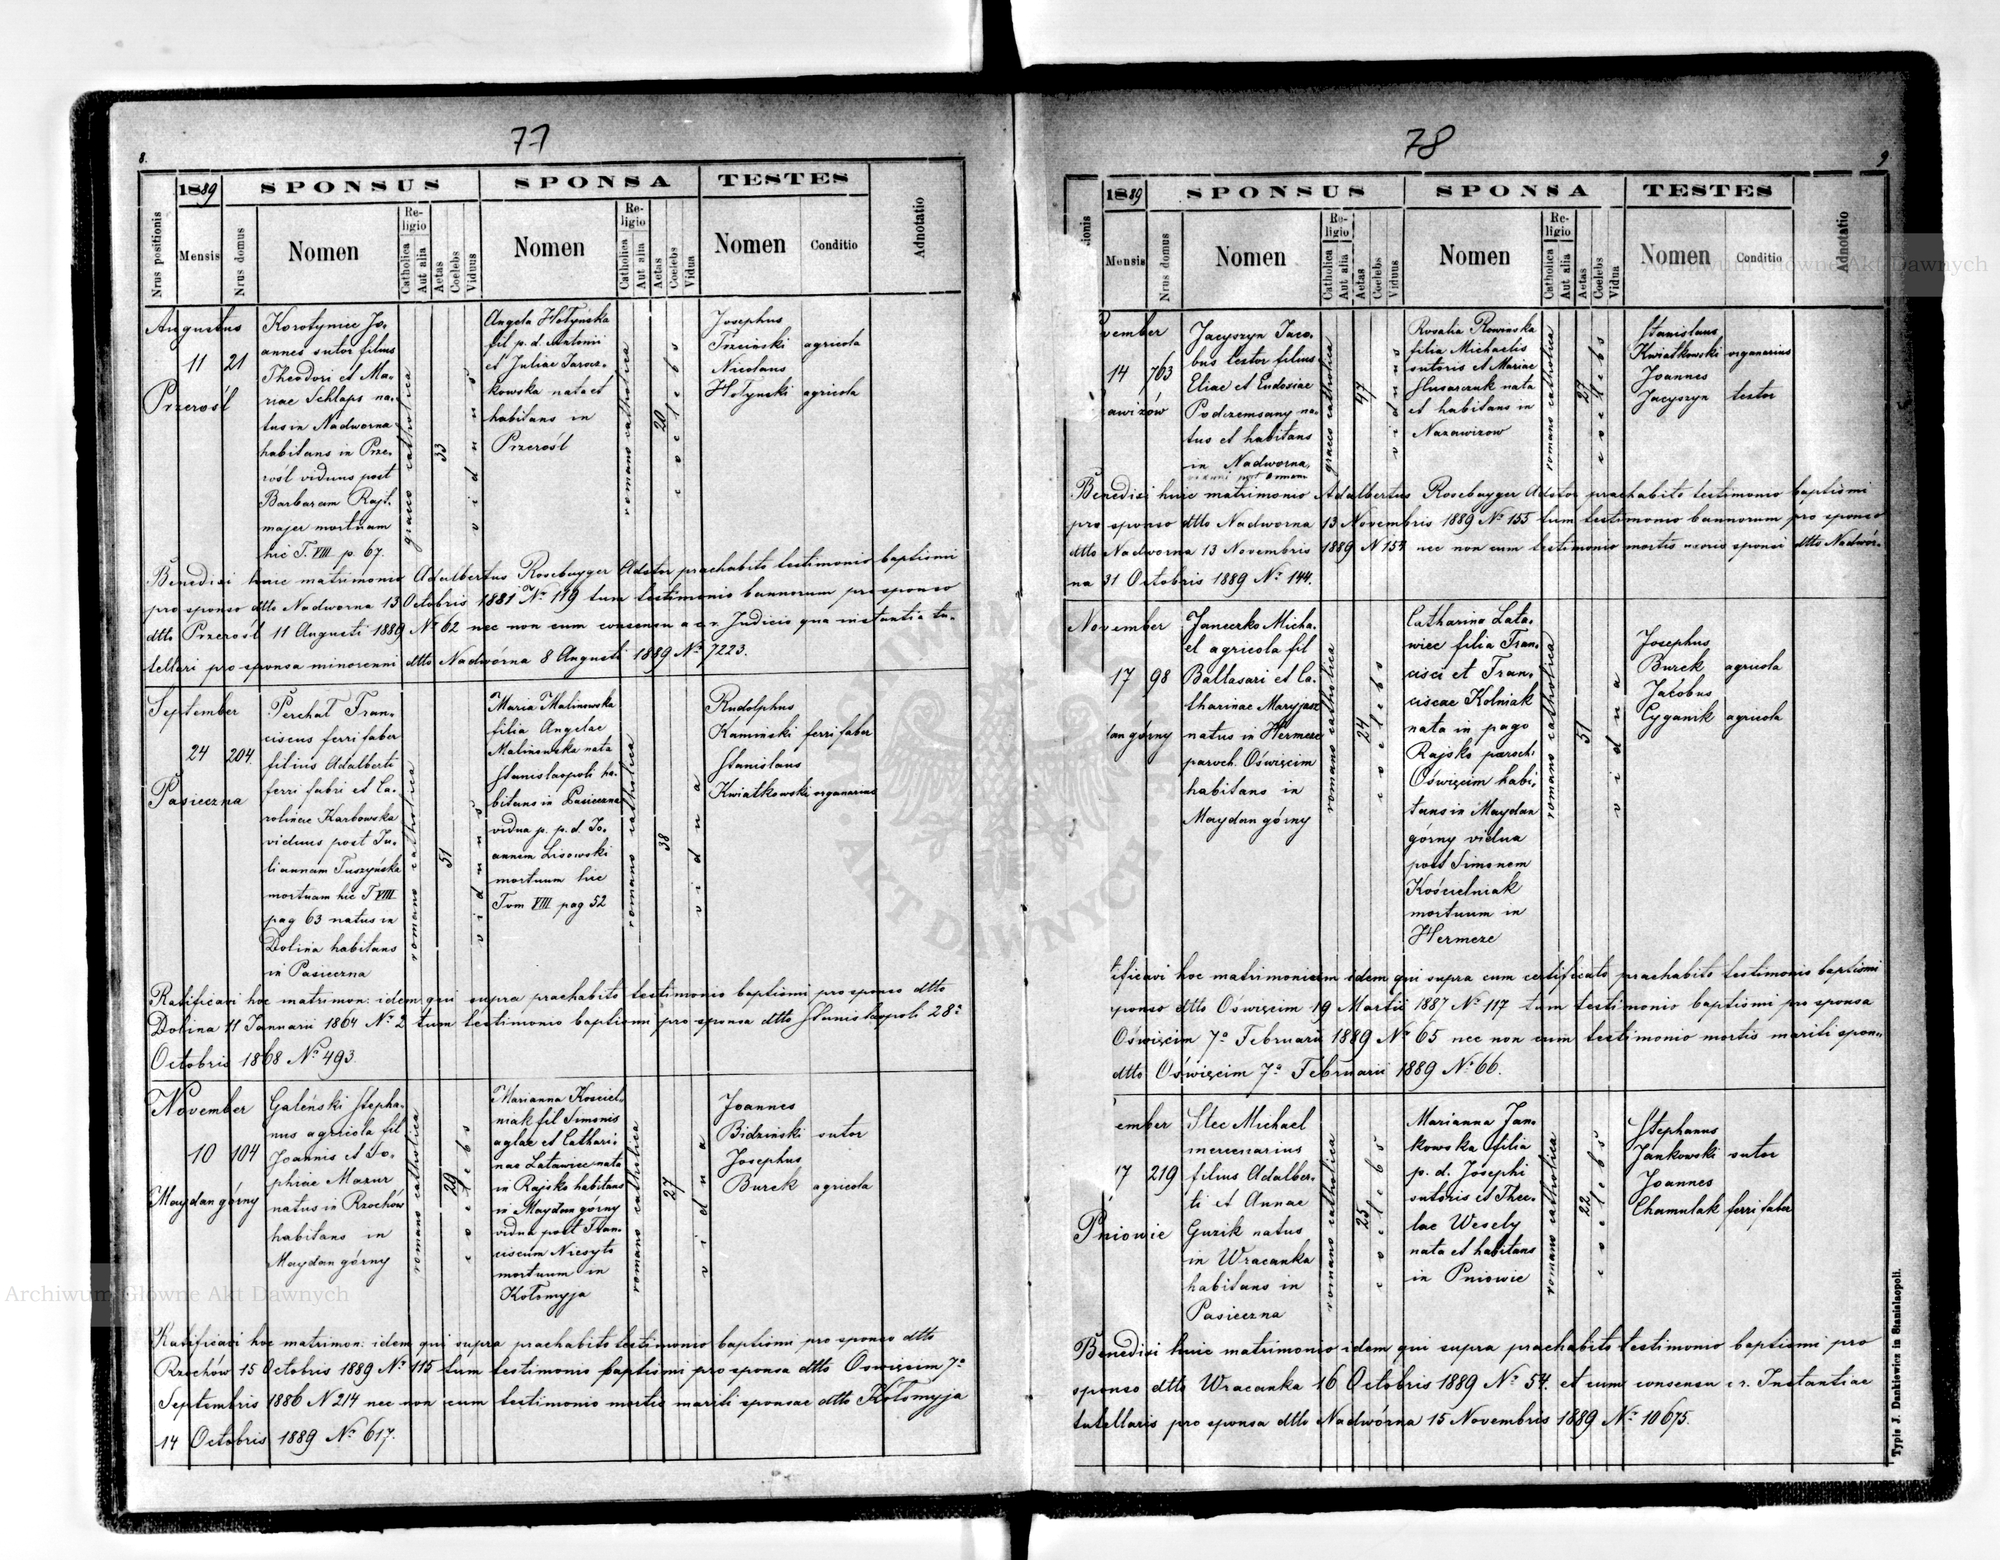 77
8.
1889 SPONSUS SPONSA TESTES
Nrus positionis
Mensis
Nrus domus
Nomen
Religio
Catholica
Aut alia
Aetas
Coelebs
Viduus
Nomen
Religio
Catholica
Aut alia
Aetas
Coelebs
Vidua
Nomen
Conditio
Adnotatio
Augustus
11 21
Przerośl
Korotynice Jo-
annes sutor filius
Theodori et Ma-
riae Schlaps na-
tus in Nadworna
habitans in Prze-
rośl viduus post
Barbaram Rajt-
majer mortuam
hic T. VIII p. 67.
graeco catholica
33
viduus
Angela Hołyńska
fil p. d. Antonii
et Juliae Jarosz-
kowska nata et
habitans in
Przerośl
romano catholica
20
coelebs
Josephus
Trzciński agricola
Nicolaus
Hołyński agricola
Benedixi huic matrimonio Adalbertus Rosebayger Adstor praehabito testimonio baptismi
pro sponso dtto Nadworna 13 Octobris 1881 No 119 tum testimonio bannorum pro sponso
dtto Przerośl 11 Augusti 1889 No 62 nec non cum consensu a c. r. Judicio qua instantia tu-
tellari pro sponsa minorenni dtto Nadwórna 8 Augusti 1889 No 7223.
September
24 204.
Pasieczna
Perchał Fran-
ciscus ferri faber
filius Adalberti
ferri fabri et Ca-
rolinae Karbowska
viduus post Ju-
liannam Tuszyńska
mortuam hic T VIII
pag 63 natus in
Dolina habitans
in Pasieczna
romano catholica
51
viduus
Maria Malinowska
filia Angelae
Malinowska nata
Stanislaopoli ha-
bitans in Pasieczna
vidua p. p. d. Jo-
annem Lisowski
mortuum hic
Tom VIII pag 52
romano catholica
38
vidua
Rudolphus
Kamiński ferri faber
Stanislaus
Kwiatkowski organarius
Ratificavi hoc matrimon: idem qui supra praehabito testimonio baptismi pro sponso dtto
Dolina 11 Januarii 1864 No 2 tum testimonio baptismi pro sponsa dtto Stanislaopoli 28a
Octobris 1868 No 493
November
10 104
Maydan górny
Galeński Stepha-
nus agricola fil
Joannis et So-
phiae Mazur
natus in Rzochów
habitans in
Maydan górny
romano catholica
29
coelebs
Marianna Kościel-
niak fil Simonis
aglae et Cathari-
nae Latawiec nata
in Rajsko habitans
in Maydan górny
vidua post Fran-
ciscum Niesyto
mortuum in
Kołomyja
romano catholica
27
vidua
Joannes
Bidziński sutor
Josephus
Burek agricola
Ratificavi hoc matrimon: idem qui supra praehabito testimonio baptismi pro sponso dtto
Rzochów 15 Octobris 1889 No 115 tum testimonio baptismi pro sponsa dtto Oswięcim 7a
Septembris 1886 N 214 nec non cum testimonio mortis mariti sponsae dtto Kołomyja
14 Octobris 1889 No 617.
78
9
1889 SPONSUS SPONSA TESTES
ionis
Mensis
Nrus domus
Nomen
Religio
Catholica
Aut alia
Aetas
Coelebs
Viduus
Nomen
Religio
Catholica
Aut alia
Aetas
Coelebs
Vidua
Nomen
Conditio
Adnotatio
vember
14 763
awizów
Jacyszyn Jaco-
bus textor filius
Eliae et Eudosiae
Podrzemsany na-
tus et habitans
in Nadworna
graeco catholica
47
viduus
Rosalia Rowinska
filia Michaelis
sutoris et Mariae
Slusarczuk nata
et habitans in
Nazawizow
romano catholica
27
coelebs
Stanislaus
Kwiatkowski organarius
Joannes
Jacyszyn textor
Benedixi huic matrimonio Adalbertus Rosebayger Adstor praehabito testimonio baptismi
pro sponso dtto Nadworna 13 Novembris 1889 No 155 tum testimonio bannorum pro sponso
dtto Nadworna 13 Novembris 1889 N 154 nec non cum testimonio mortis uxoris sponsi dtto Nadwor-
na 31 Octobris 1889 No 144.
November
17 98
dan górny
Janeczko Micha-
el agricola fil
Baltasari et Ca-
tharinae Maryjasz
natus in Hermeze
paroch. Oświęcim
habitans in
Maydan górny
romano catholica
24
coelebs
Catharina Lata-
wiec filia Fran-
cisci et Fran-
ciscae Kolniak
nata in pago
Rajsko paroch:
Oświęcim habi-
tans in Maydan
górny vidua
post Simonem
Kościelniak
mortuum in
Hermeze
romano catholica
51
vidua
Josephus
Burek agricola
Jacobus
Cyganik agricola
tificavi hoc matrimonium idem qui supra cum certificato praehabito testimonio baptismi
sponso dtto Oświęcim 19 Martii 1887 No 117 tum testimonio baptismi pro sponsa
Oświęcim 7a Februarii 1889 No 65 nec non cum testimonio mortis mariti spon-
dtto Oświęcim 7a Februarii 1889 No 66.
ember
17 219
Pniowie
Stec Michael
mercenarius
filius Adalber-
ti et Annae
Guzik natus
in Wracanka
habitans in
Pasieczna
romano catholica
25
coelebs
Marianna Jan-
kowska filia
p. d. Josephi
sutoris et Thec-
lae Wesely
nata et habitans
in Pniowie
romano catholica
22
coelebs
Stephanus
Jankowski sutor
Joannes
Chamulak ferri faber
Benedixi huic matrimonio idem qui supra praehabito testimonio baptismi pro
sponso dtto Wracanka 16 Octobris 1889 No 54. et cum consensu c. r. Instantiae
tutellaris pro sponsa dtto Nadwórna 15 Novembris 1889 No 10675.
Typis J. Dankiewicz in Stanislaopoli.
Archiwum Główne Akt Dawnych
Archiwum Główne Akt Dawnych
ARCHIWUM
AKT DAWNYCH